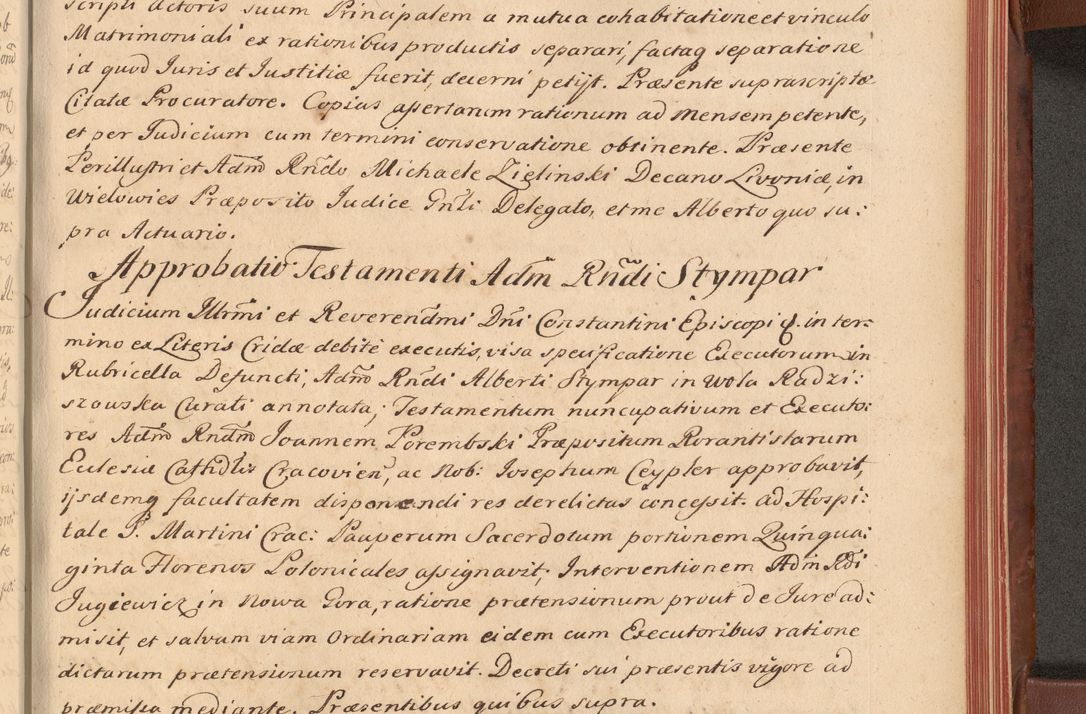 scripti Actoris suum Principalem a mutua cohabitatione et vinculo
Matrimoniali ex rationibus productis separari, factaq separatione
id quod Juris et Justitiæ fuerit, decerni petijt. Præsente suprascripto
Citatæ Procuratore. Copias assertarum rationum ad mensem petente,
et per Judicium cum termini conservatione obtinente. Præsente
Perillustri et Adm̃ Rñdo Michaele Zielinski Decano Livoniæ, in
Wielowies Præposito Judice Gñli Delegato, et me Alberto quo su:
pra Actuario.
Approbatio Testamenti Adm̃ Rñdi Stympar
Judicium Illrm̃i et Reverendm̃i Dñi Constantini Episcopi &. in ter:
mino ex Literis Cridæ debitè executis, visa specificatione Executorum in
Rubricella Defuncti, Adm̃ Rñdi Alberti Stympar in Wola Radzi:
szouska Curati annotata, Testamentum nuncupativum et Executo:
res Adm̃ Rndm̃ Joannem Porembski Præpositum Rorantistarum
Eclesiæ Cathdlis Cracovien, ac Nob: Josephum Ceypler approbavit,
ijsdemq facultatem disponendi res derelictas concessit. ad Hospi:
tale S. Martini Crac: Pauperum Sacerdotum portionem Quinqua:
ginta Florenos Polonicales assignavit; Interventionem Adm̃ Rdi
Jugiewicz in Nowa Gora, ratione prætensionum prout de Jure ad:
misit, et salvam viam Ordinariam eidem cum Executoribus ratione
dictarum prætensionum reservavit. Decreti sui præsentis vigore ad
præmissa mediante. Præsentibus quibus supra.